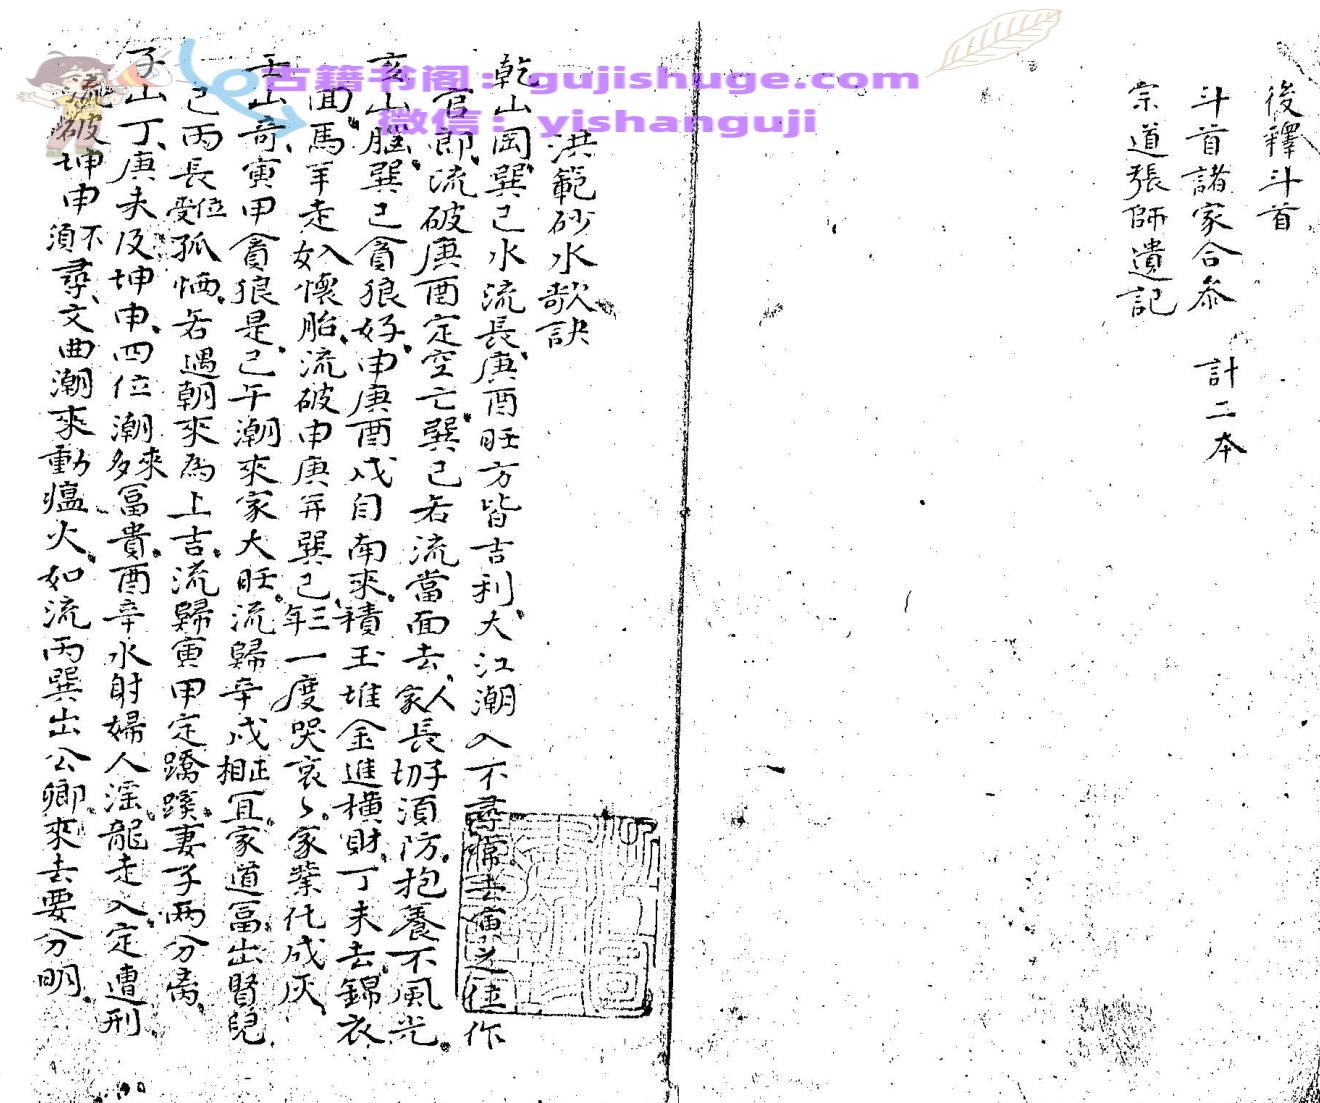 後釋斗首
斗首諸家合参 計二本
宗道張師遺記
洪範砂水歌訣
乾山岡巽巳水流長庚酉旺方皆吉利大江潮入不尋常去寅之位作
官郎流破庚酉定空亡巽巳若流當面去人家長切子須防抱養不風光
亥山脑巽巳貪狼好申庚酉戌自南來積玉堆金進橫財丁未去錦衣
面馬羊走入如懷胎流破申庚并巽巳三年一度哭哀々家業化成灰
壬山奇寅甲貪狼是己午潮來家大旺流歸辛戌正相宜家道冨出賢兒
己丙長位受孤恓若遇朝來為上吉流歸寅甲定蹺蹊妻子两分离
子山丁庚未及坤申四位潮來多冨貴酉辛水射婦人淫龍走入定遭刑
流破坤申不須尋文曲潮來動瘟火如流丙巽出公卿來去要分明
古籍书阁：gujishuge.com
微信：yishanguji